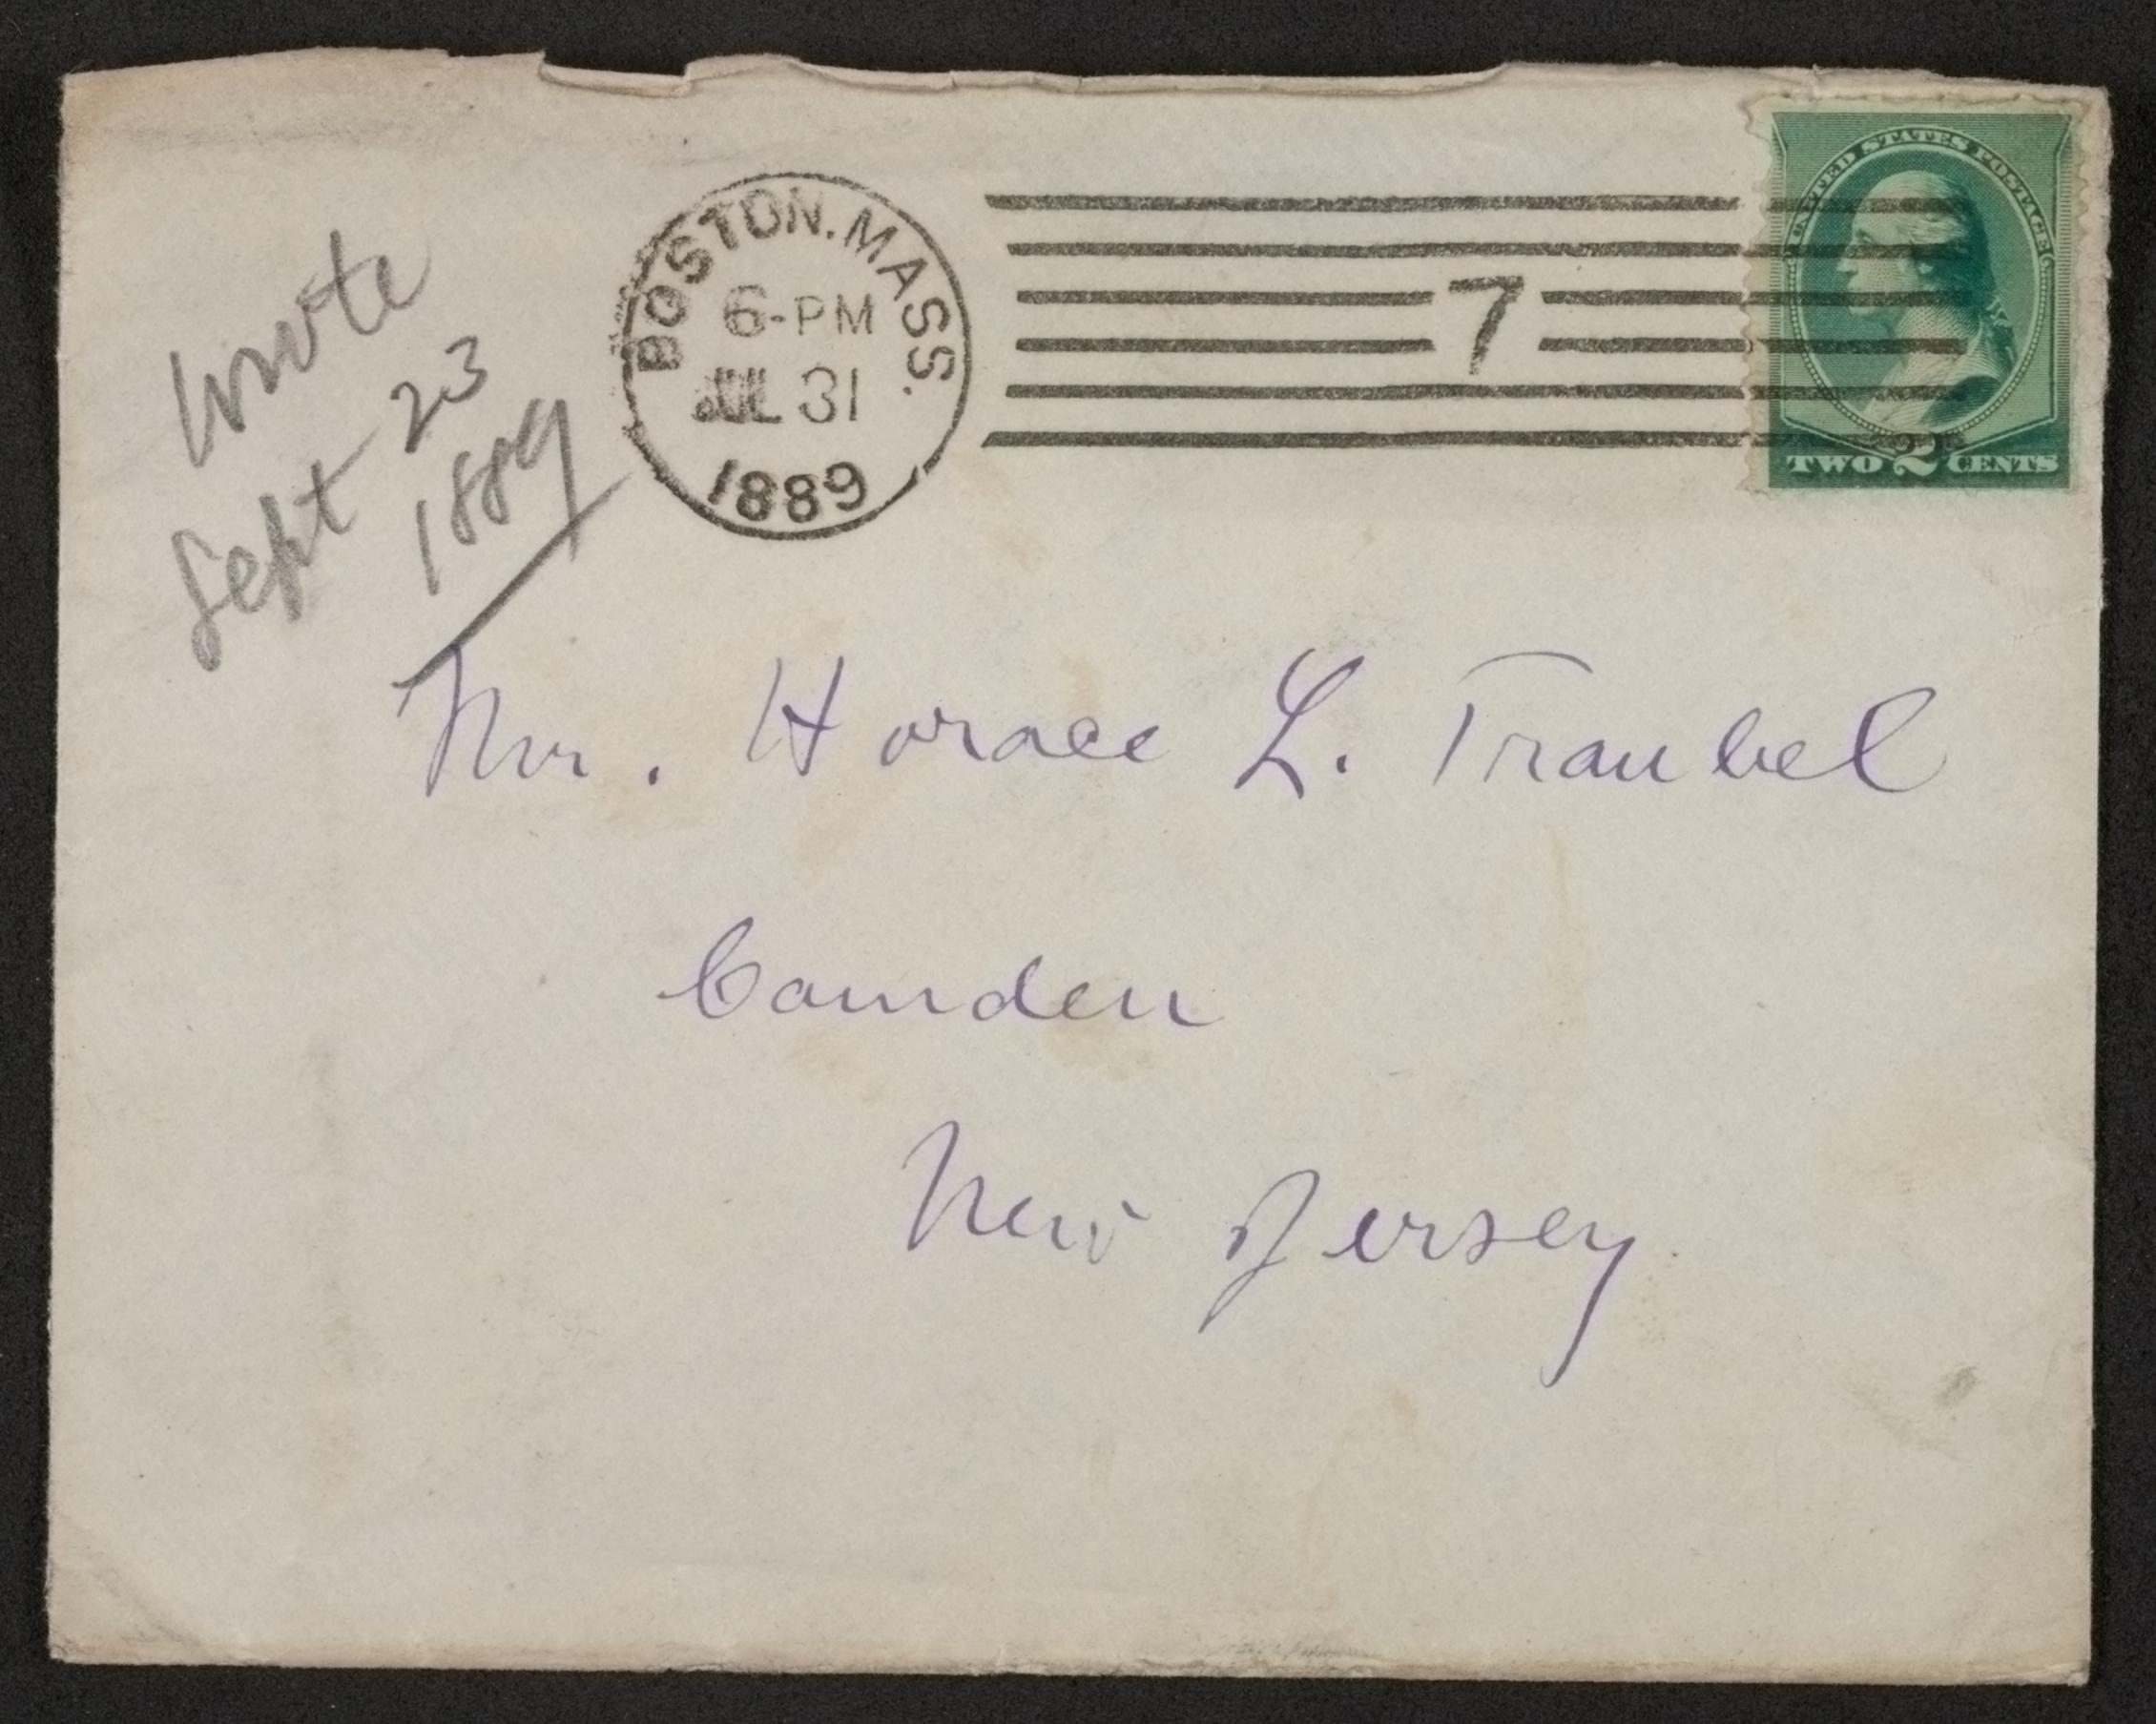 wrote
Sept 23
1889
BOSTON. MASS.
6-PM
JUL 31
1889
7
UNITED STATES POSTAGE
TWO 2 CENTS
Mr. Horace L. Traubel
Camden
New Jersey